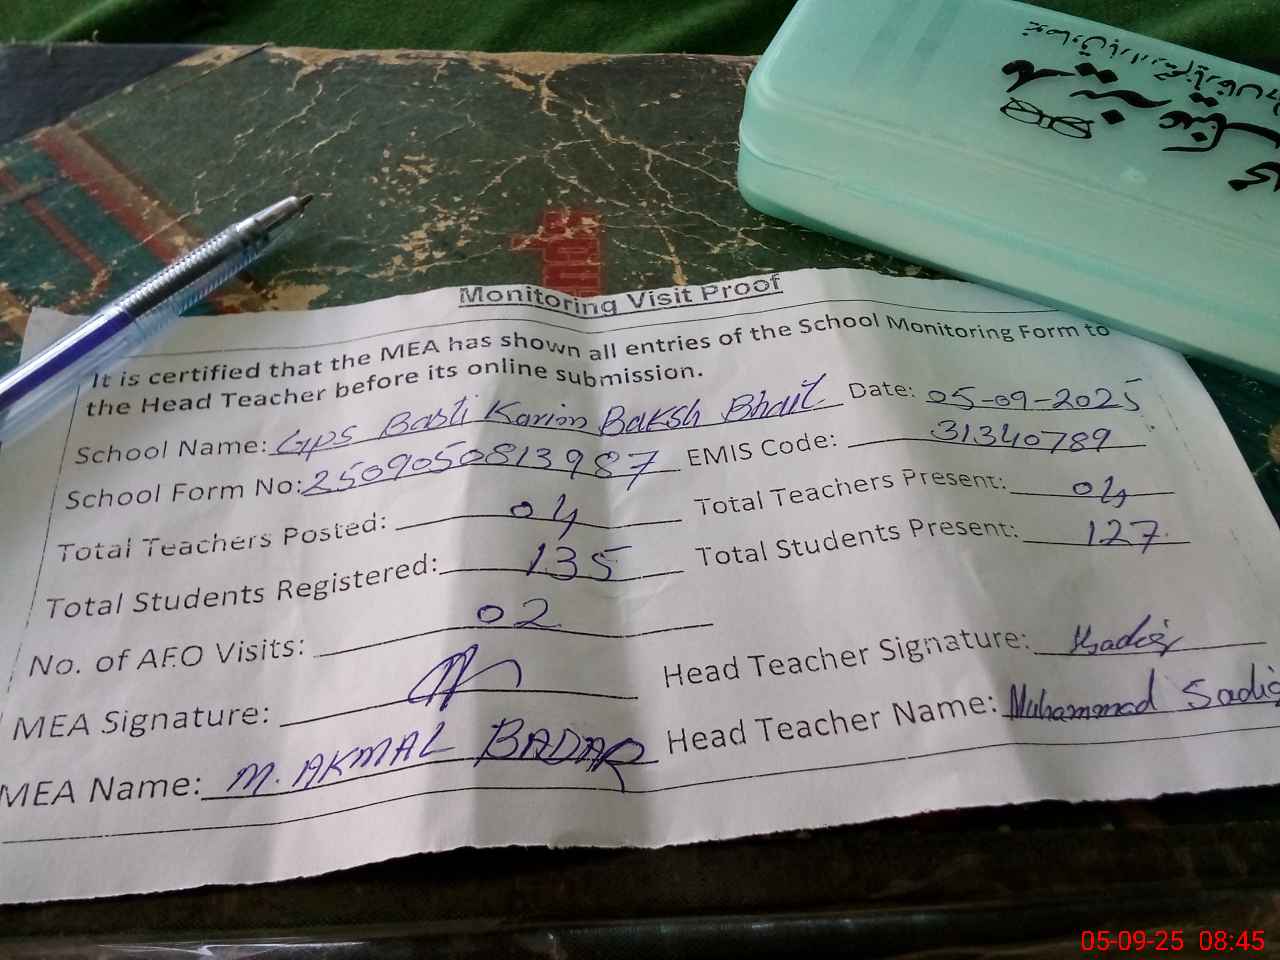 Monitoring Visit Proof
It is certified that the MEA has shown all entries of the School Monitoring Form to
the Head Teacher before its online submission.
School Name: Gps Basti Karim Baksh Bhait Date: 05-09-2025
School Form No: 2509050813987 EMIS Code: 31340789
Total Teachers Posted: 04 Total Teachers Present: 04
Total Students Registered: 135 Total Students Present: 127
No. of AEO Visits: 02
MEA Signature: Head Teacher Signature: Sadiq
MEA Name: M. AKMAL BADAR Head Teacher Name: Muhammad Sadiq
05-09-25 08:45